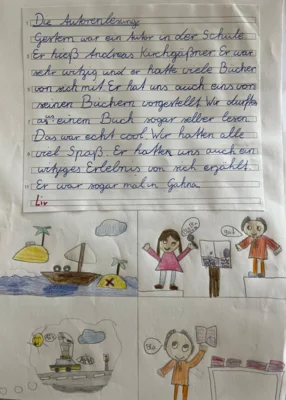 Die Autorenlesung
Gestern war ein Autor in der Schule.
Er hieß Andreas Kirchgäßner. Er war
sehr witzig und er hatte viele Bücher
von sich mit. Er hat uns auch eins von
seinen Büchern vorgestellt. Wir durften
aus einem Buch sogar selber lesen.
Das war echt cool. Wir hatten alle
viel Spaß. Er hatte uns auch ein
witziges Erlebnis von sich erzählt.
Er war sogar mal in Gahna.
Liv